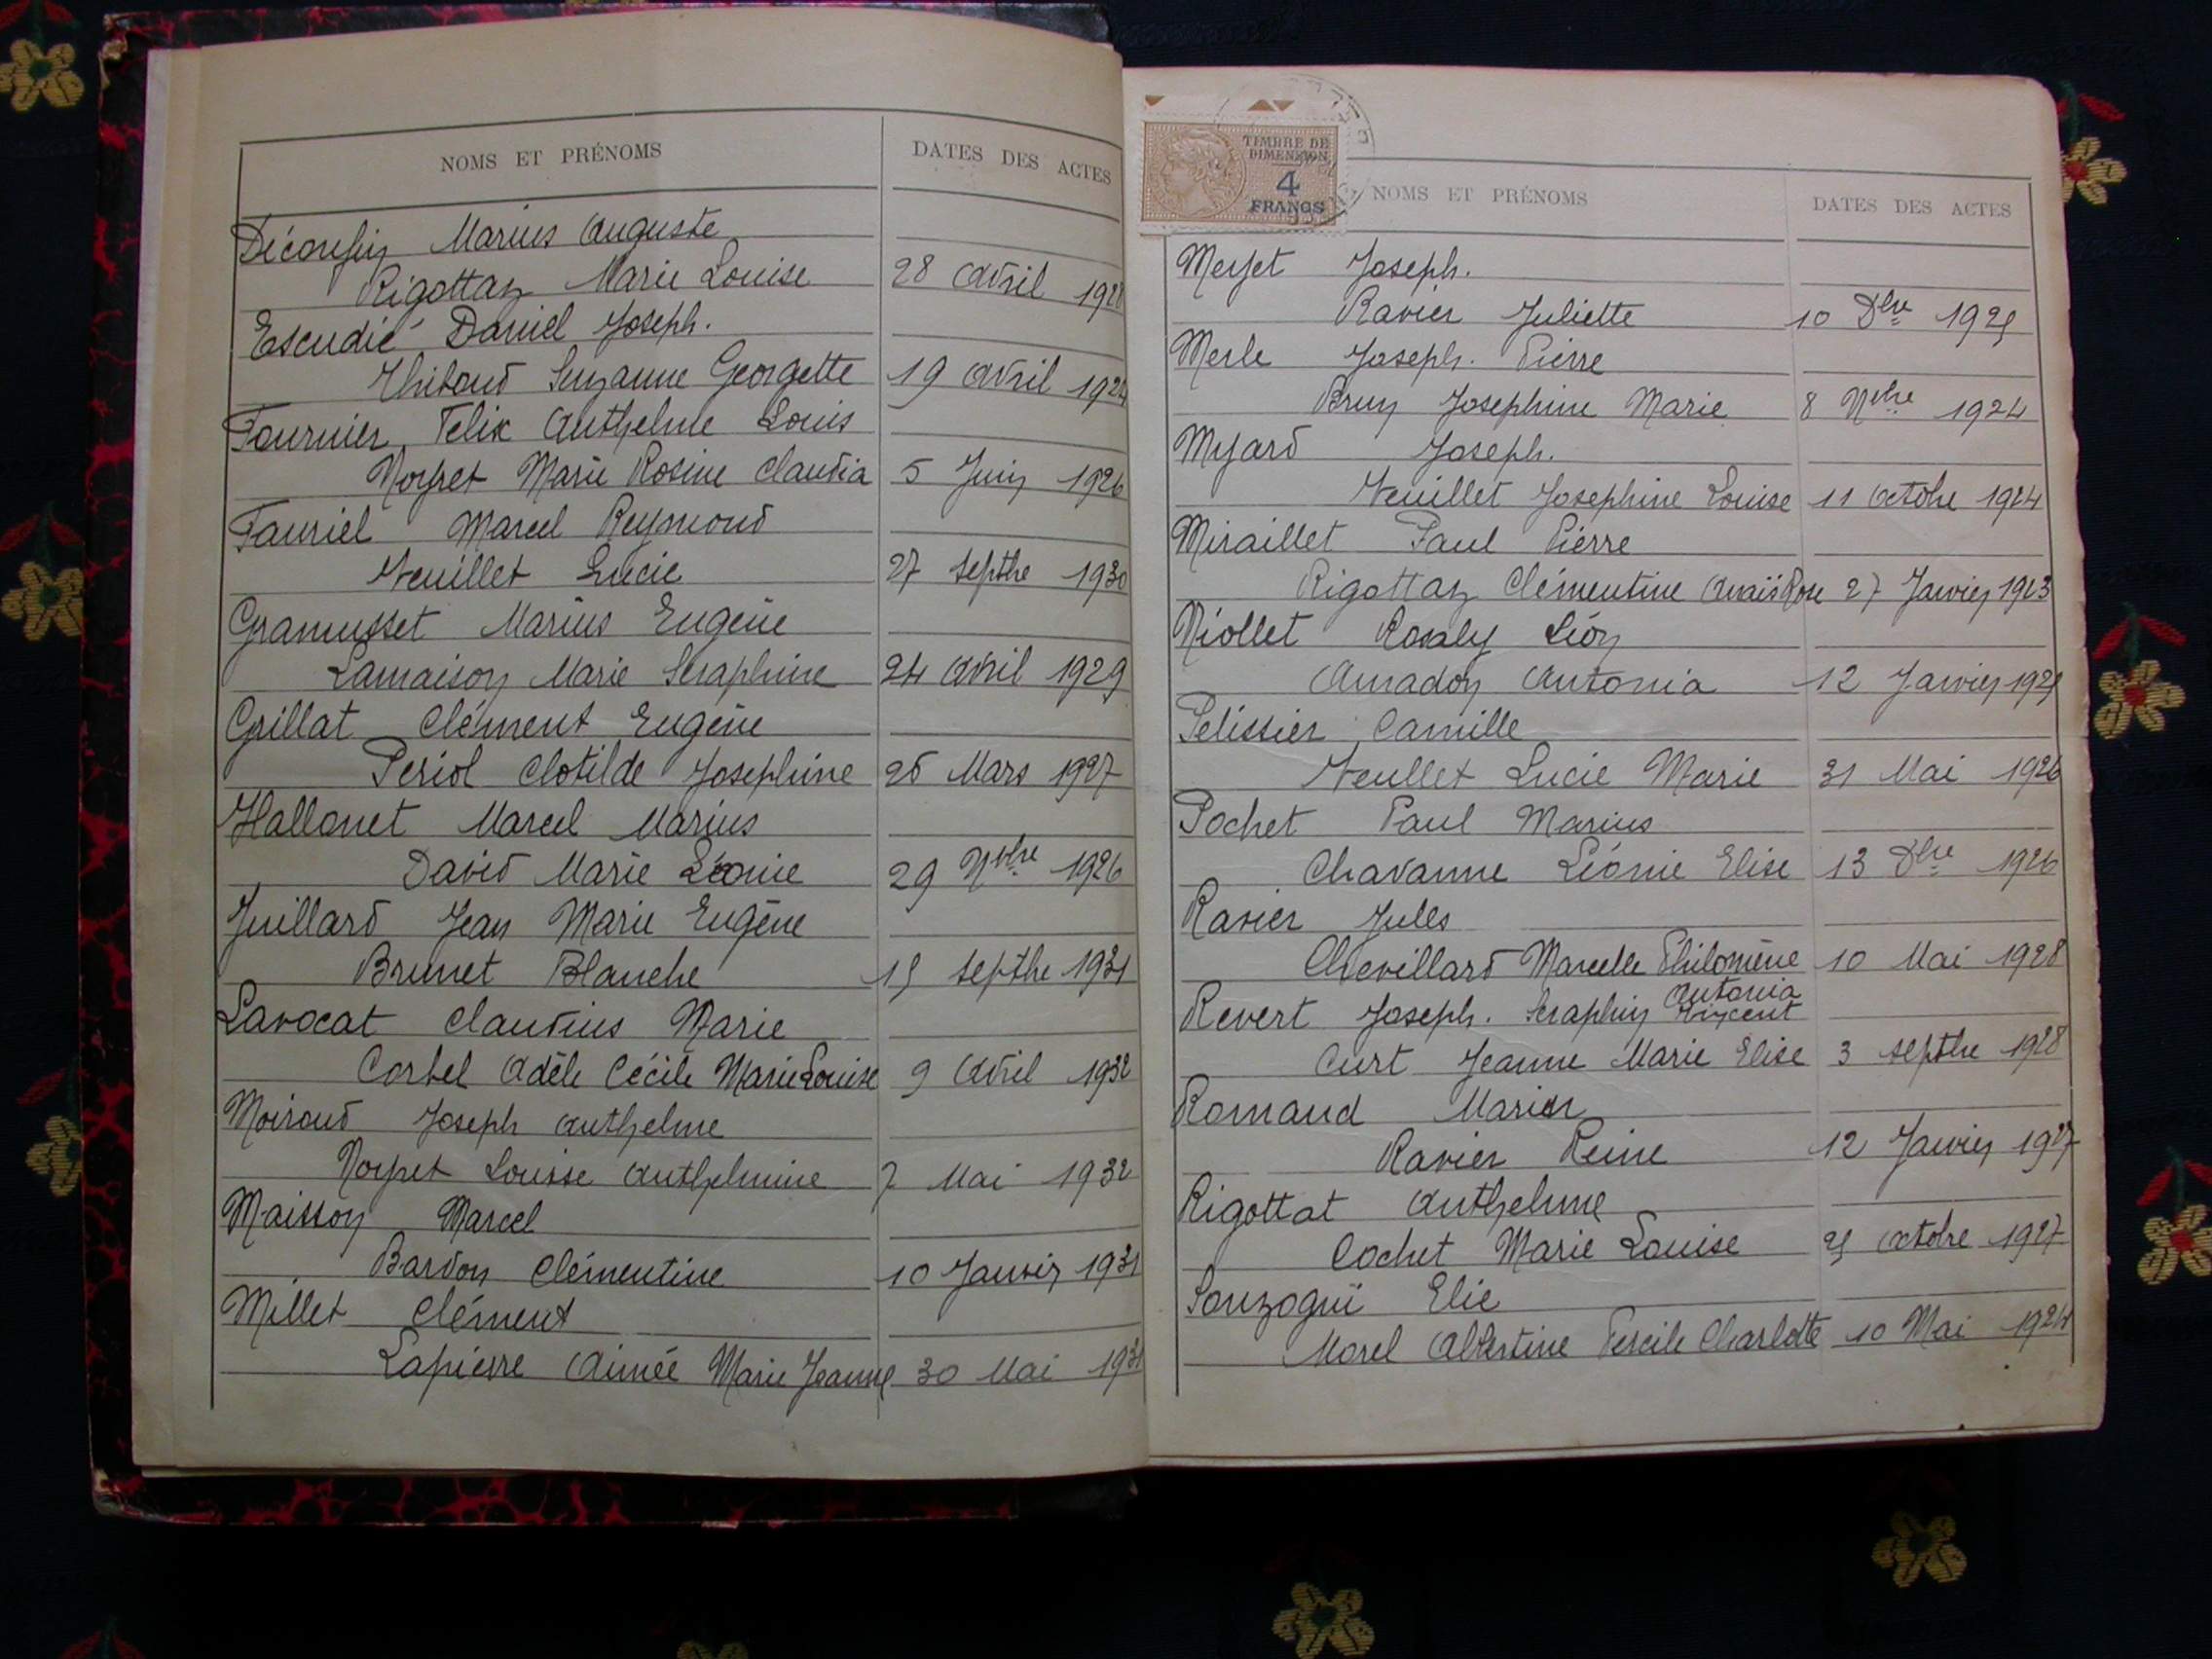 NOMS ET PRÉNOMS DATES DES ACTES
Décousin Marius Auguste
Rigottaz Marie Louise 28 Avril
Escudié Daniel Joseph.
Thiboud Suzanne Georgette 19 Avril 1924
Fournier Felix Anthelme Louis
Noyret Marie Rosine Claudia 5 Juin 1926
Fauriel Marcel Reymond
Veuillet Lucie 27 Septbre 1930
Gramusset Marius Eugène
Lamaison Marie Seraphine 24 Avril 1929
Grillat Clément Eugène
Periol Clotilde Josephine 26 Mars 1927
Hallonet Marcel Marius
David Marie Léonie 29 Nvbre 1926
Juillard Jean Marie Eugène
Brunet Blanche 19 Septbre 1931
Lavocat Claudius Marie
Corbel Adèle Cécile Marie Louise 9 Avril 1932
Moiroud Joseph Anthelme
Noyret Louise Anthelmine 7 Mai 1932
Maisson Marcel
Bardon Clémentine 10 Janvier 1931
Millet Clément
Lapierre Aimée Marie Jeanne 30 Mai 1931
TIMBRE DE
DIMENSION
4
FRANCS
NOMS ET PRÉNOMS DATES DES ACTES
Joseph.
Ravier Juliette 10 Dbre 1925
Merle Joseph. Pierre
Brun Josephine Marie 8 Nvbre 1924
Myard Joseph.
Veuillet Josephine Louise 11 Octobre 1924
Miraillet Paul Pierre
Rigottaz Clémentine Anaïs Rose 27 Janvier 1923
Niollet Rosaly Léon
Amadon Antonia 12 Janvier
Pelissier Camille
Veullet Lucie Marie 31 Mai 1926
Pochet Paul Marius
Chavanne Léonie Elise 13 Dbre 1926
Ravier Jules
Chevillard Marcelle Philomène 10 Mai 1928
Antonia
Revert Joseph. Seraphin Vincent
Curt Jeanne Marie Elise 3 Septbre 1928
Romand Marien
Ravier Reine 12 Janvier 1927
Rigottat Anthelme
Cochet Marie Louise Octobre 1927
Sonzogni Elie
Morel Albertine Charlotte 10 Mai 1924